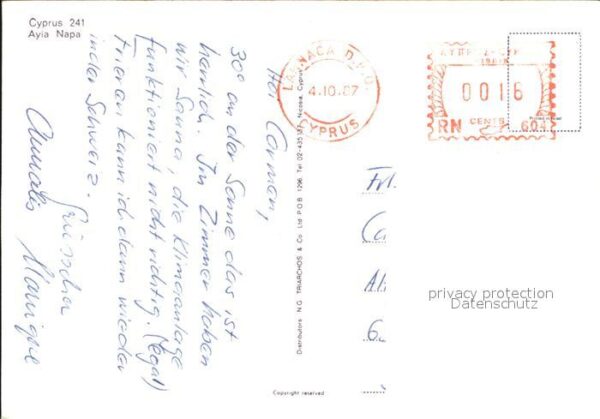 Cyprus 241
Ayia Napa
Hoi Carmen,
30° an der Sonne das ist
herrlich. Im Zimmer haben
wir Sauna, die Klimaanlage
funktioniert nicht richtig. (egal)
Frieren kann ich dann wieder
in der Schweiz.
Grüsschen
Monique
LARNACA D.P.O.
4.10.87
CYPRUS
0016
CENTS
RN
604
Frl.
Ca
Al
6
privacy protection
Datenschutz
Distributors: N.G. TRIARCHOS & Co. Ltd P.O.B. 1296, Tel 02-435 Nicosia, Cyprus
Copyright reserved